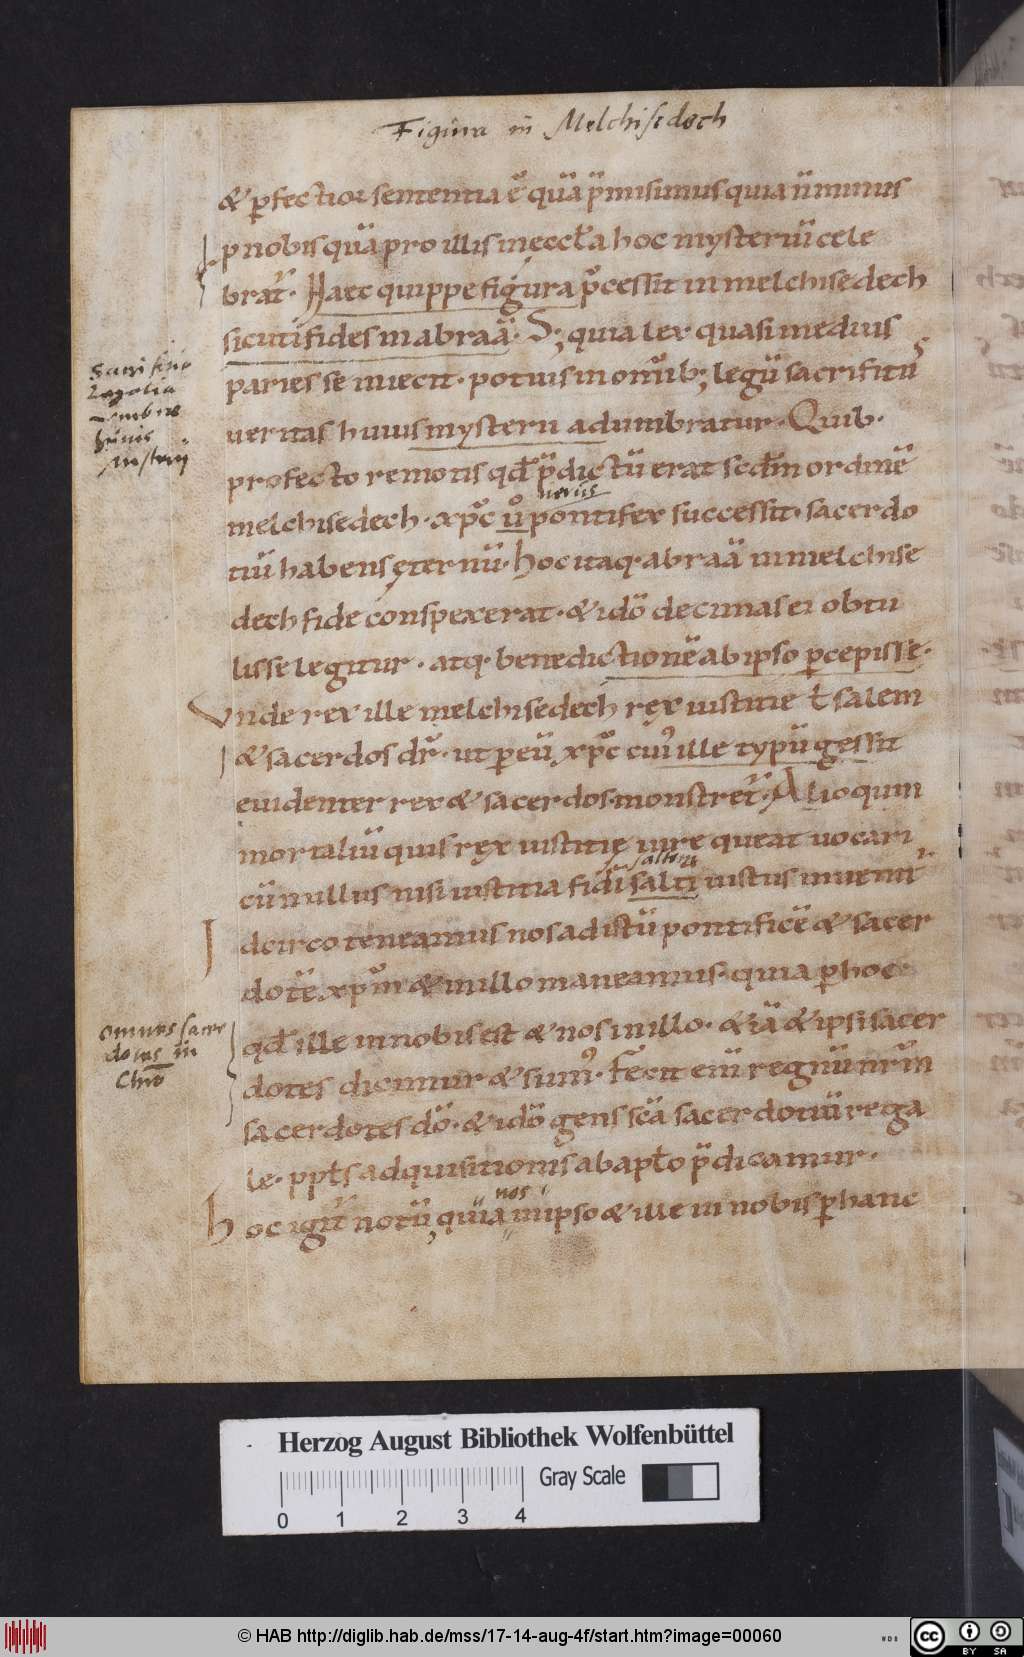 Figura in Melchisedech
& ꝑfectior sententia ē quā p̄misimus quia n̄ minus
p nobis quā pro illis in ęccl̄a hoc mysteriū cele
brat̄. Haec quippe figura p̄cessit in melchisedech
sicuti fides in abraā. S; quia lex quasi medius
paries se iniecit. potius in omib; legū sacrifitiis
Sacrificia
Legalia
umbrae
huius
mysterij
ueritas huius mysterii adumbratur. Quib.
profecto remotis qd̄ p̄dictū erat scd̄m ordinē
verus
melchisedech. xp̄c ů pontifex successit. sacerdo
tiū habens ęternū. Hoc itaq. abraā in melchise
dech fide conspexerat. & idō decimas ei obtu
lisse legitur. atq. benedictionē ab ipso ꝑcepisse.
Vnde rex ille melchisedech rex iustitie ł salem
& sacerdos dr̄. ut ꝑ eū xp̄c cui' ille typū gessit
euidenter rex & sacerdos monstret̄. Alioquin
mortaliū quis rex iustitię iure queat uocari
saltem
cū nullus nisi iustitia fidi salti iustus inuenit̄
Idcirco teneamus nos ad istū pontificē & sacer
dotē xp̄m & in illo maneamus. quia ꝑ hoc
Omnes sacer
dotes in
Chr̄o
qd̄ ille in nobis est & nos in illo. & iā & ipsi sacer
dotes dicimur & sum'. Fecit eni regnū nr̄m
sacerdotes dō. & idō gens sc̄a sacerdotiū rega
le. ppl̄s adquisitionis ab apl̄o p̄dicamur.
nos
Hoc igit̄ notū, quia in ipso & ille in nobis ꝑ hanc
Herzog August Bibliothek Wolfenbüttel
Gray Scale
0 1 2 3 4
© HAB http://diglib.hab.de/mss/17-14-aug-4f/start.htm?image=00060
WDB
cc BY SA